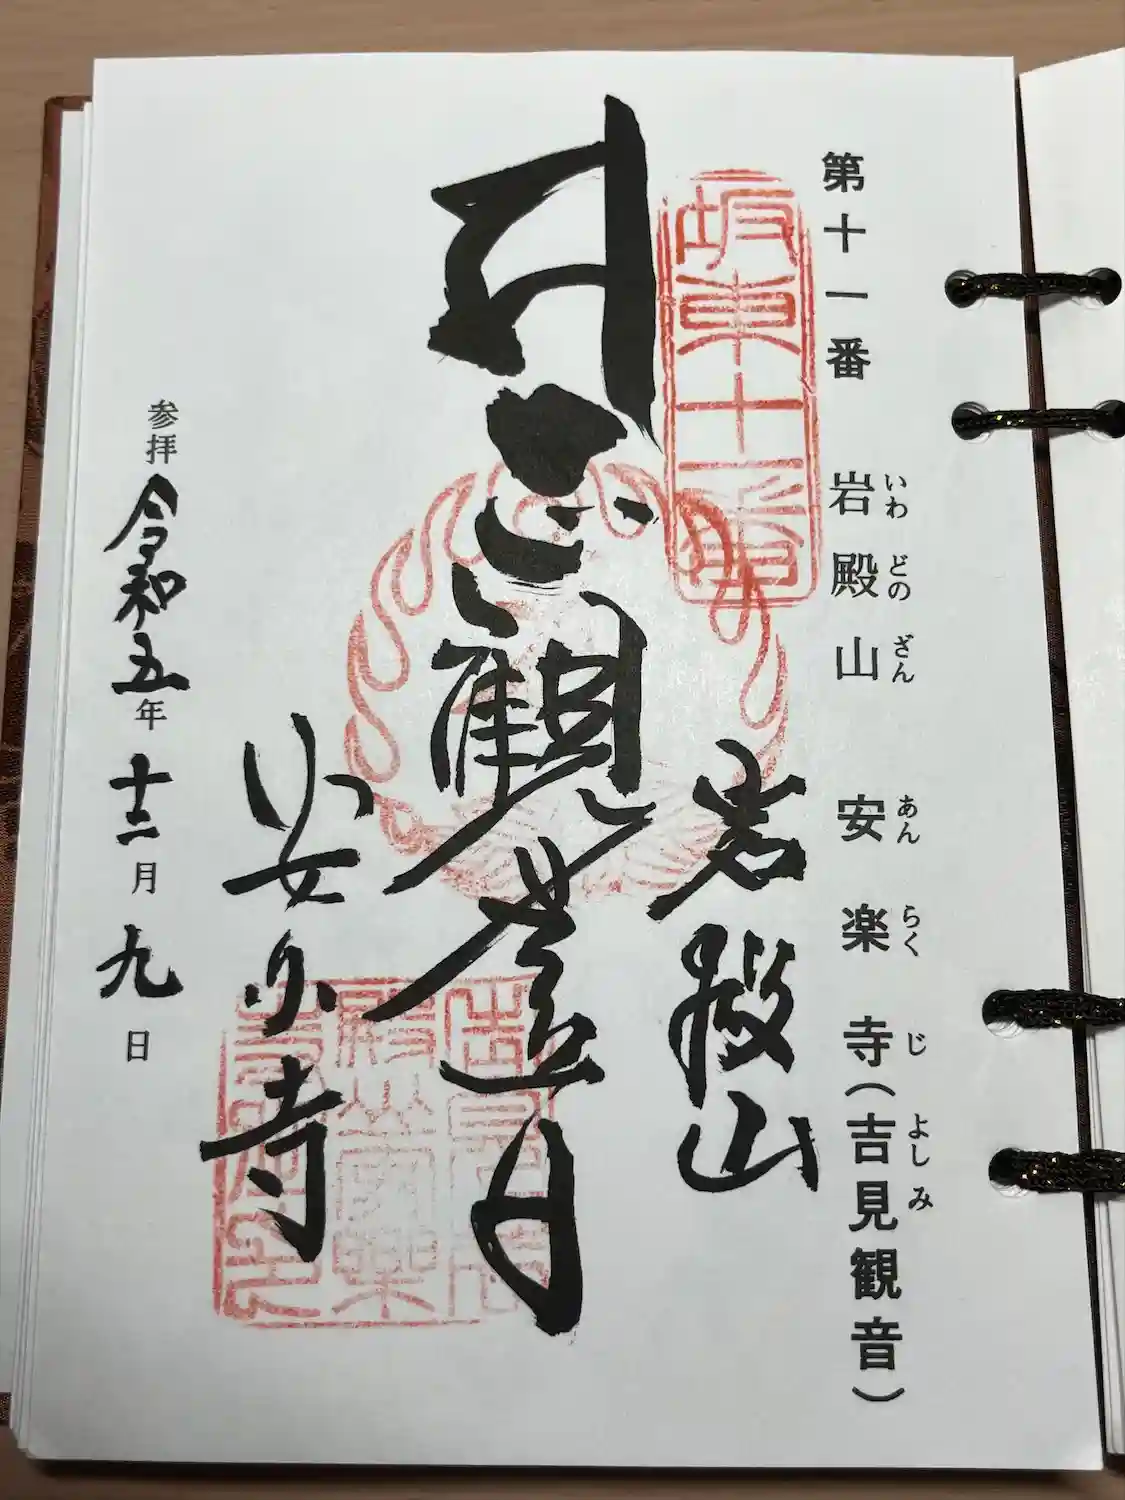 第十一番 岩殿山 安楽寺(吉見観音)
いわ どの ざん あん らく じ よしみ
坂東十一番
岩殿山
観世音
安楽寺
参拝 令和五年十二月九日